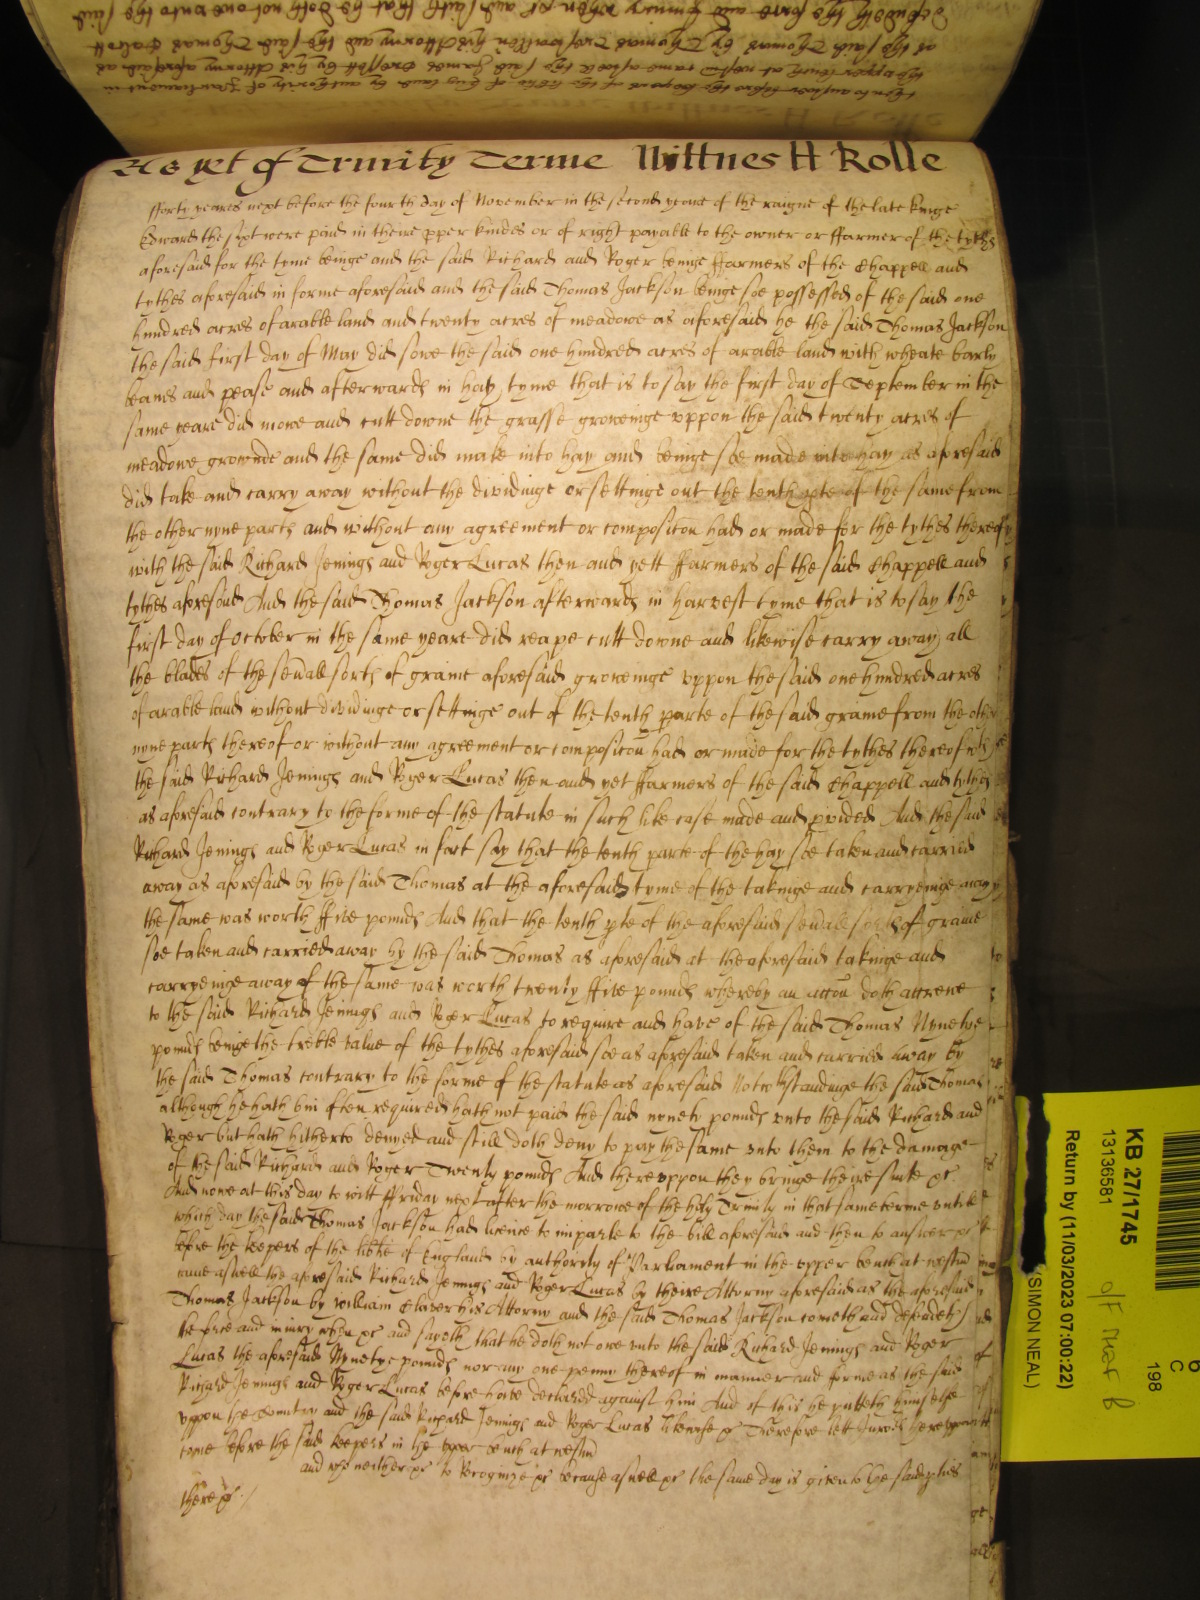 As yet of Trinity Terme Wittnes H Rolle
fforty yeares next before the fourth day of November in the second yeare of the raigne of the late kinge
Edward the sixt were paid in theire pper kindes or of right payable to the owner or ffarmer of the tythes
aforesaid for the tyme beinge and the said Richard and Roger beinge ffarmers of the Chappell and
tythes aforesaid in forme aforesaid and the said Thomas Jackson beinge soe possessed of the said one
hundred acres of arable land and twenty acres of meadowe as aforesaid he the said Thomas Jackson
the said first day of May did sowe the said one hundred acres of arable land with wheate barly
beanes and pease and afterwards in hay tyme that is to say the first day of September in the
same yeare did mowe and cutt downe the grasse groweinge vppon the said twenty acres of
meadowe grownde and the same did make into hay and beinge soe made into hay as aforesaid
did take and carry away without the dividinge or settinge out the tenth pte of the same from
the other nyne parts and without any agreement or composicon had or made for the tythes thereof
with the said Richard Jenings and Roger Lucas then and yett ffarmers of the said Chappell and
tythes aforesaid And the said Thomas Jackson afterwards in harvest tyme that is to say the
first day of October in the same yeare did reape cutt downe and likewise carry away all
the blades of the sevall sorts of graine aforesaid groweinge vppon the said one hundred acres
of arable land without dividinge or settinge out of the tenth parte of the said graine from the other
nyne parts thereof or without any agreement or composicon had or made for the tythes thereof with
the said Richard Jenings and Roger Lucas then and yet ffarmers of the said Chappell and tythes
as aforesaid contrary to the forme of the statute in such like case made and pvided And the said
Richard Jenings and Roger Lucas in fact say that the tenth parte of the hay soe taken and carried
away as aforesaid by the said Thomas at the aforesaid tyme of the takinge and carryeinge away
the same was worth ffive pounds And that the tenth pte of the aforesaid sevall sorts of graine
soe taken and carried away by the said Thomas as aforesaid at the aforesaid takinge and
carryeinge away of the same was worth twenty ffive pounds whereby an accon doth accrewe
to the said Richard Jenings and Roger Lucas to require and have of the said Thomas Nynetye
pounds beinge the treble value of the tythes aforesaid soe as aforesaid taken and carried away by
the said Thomas contrary to the forme of the statute as aforesaid Notwthstandinge the said Thomas
although he hath bin often required hath not paid the said nynety pounds vnto the said Richard and
Roger but hath hitherto denyed and still doth deny to pay the same vnto them to the damage
of the said Richard and Roger Twenty pounds And therevppon they bringe theire suite &c
And nowe at this day to witt ffriday next after the morrowe of the holy Trinity in that same terme vntill
which day the said Thomas Jackson had licence to imparle to the bill aforesaid and then to answer &c
before the keepers of the libtie of England by authority of Parliament in the vpper bench at westm
came aswell the aforesaid Richard Jenings and Roger Lucas by theire Attorny aforesaid as the aforesaid
Thomas Jackson by William Claver his Attorny and the said Thomas Jackson cometh and defendeth
the force and iniury when &c and sayeth that he doth not owe vnto the said Richard Jenings and Roger
Lucas the aforesaid Nynetye pounds nor any one penny thereof in manner and forme as the said
Richard Jenings and Roger Lucas before have declared against him And of this he putteth himselfe
vppon the Countrey and the said Richard Jenings and Roger Lucas likewise &c Therefore lett Jurors therevppon
come before the said keepers in the vpper bench at westm
and who neither &c to Recognize &c because aswell &c the same day is given to the said pties
there &c
KB 27/1745
13136581
Return by (11/03/2023 07:00:22)
(SIMON NEAL)
C
198